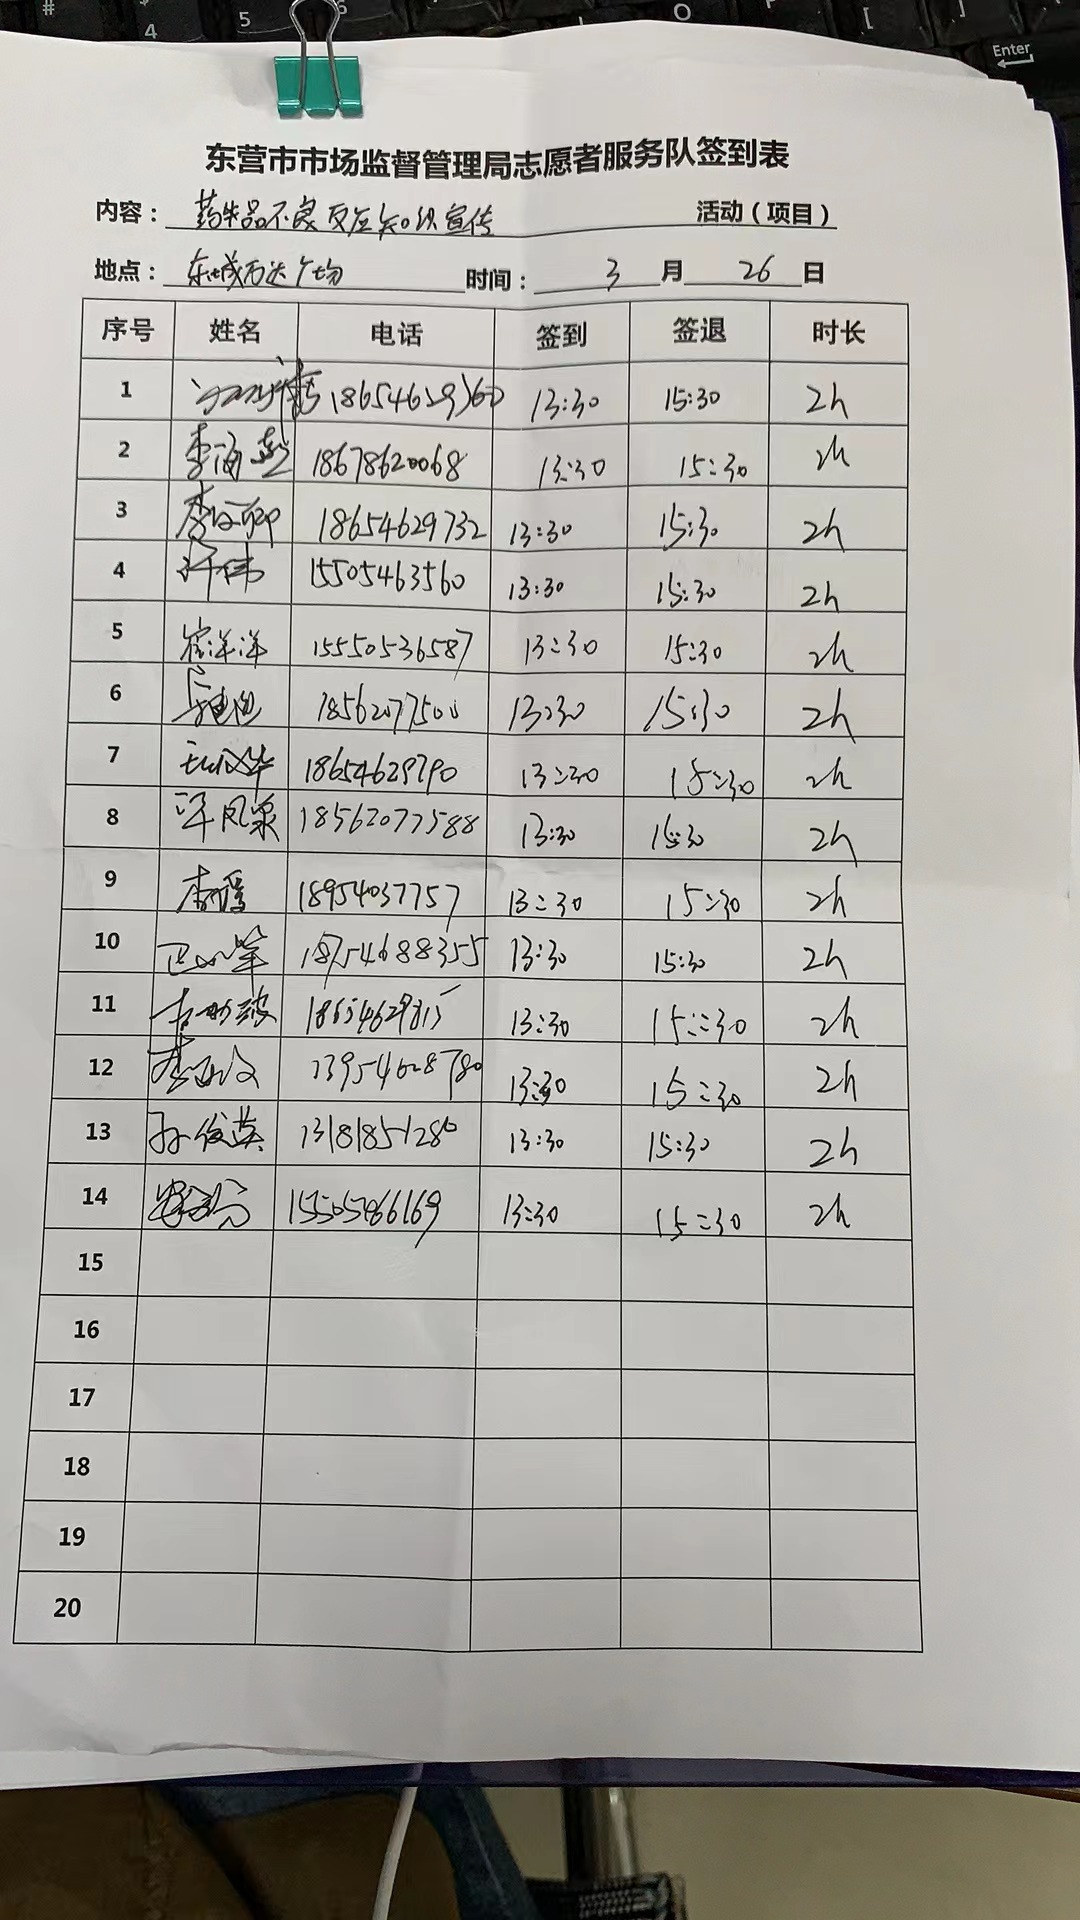 东营市市场监督管理局志愿者服务队签到表
内容： 药械品不良反应知识宣传 活动（项目）
地点： 东城万达广场 时间： 3 月 26 日
序号 姓名 电话 签到 签退 时长
1 18654629360 13:30 15:30 2h
2 李海燕 18678620068 13:30 15:30 2h
3 18654629732 13:30 15:30 2h
4 许伟 15505463560 13:30 15:30 2h
5 崔洋洋 15550536587 13:30 15:30 2h
6 18562077500 13:30 15:30 2h
7 18654629790 13:30 15:30 2h
8 18562077588 13:30 15:30 2h
9 18954037757 13:30 15:30 2h
10 18754688355 13:30 15:30 2h
11 18654629815 13:30 15:30 2h
12 13954628780 13:30 15:30 2h
13 孙俊英 13181851280 13:30 15:30 2h
14 13:30 15:30 2h
15
16
17
18
19
20
# 4 5 6 O [ ] Enter